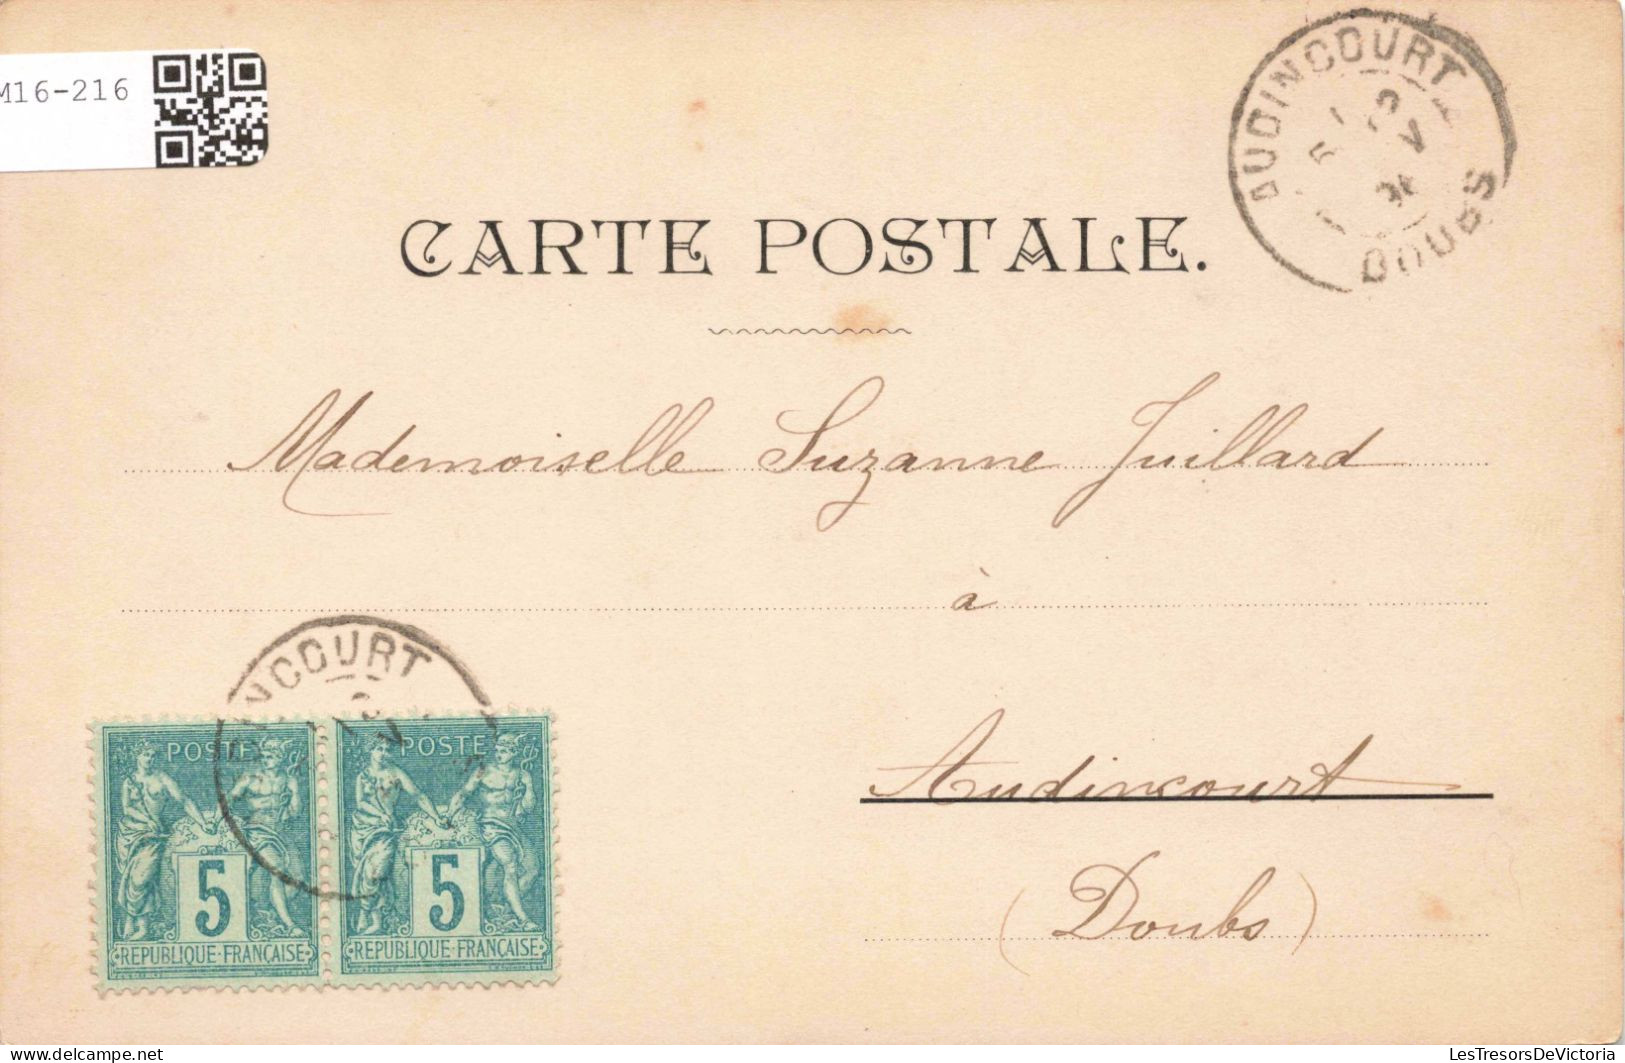 M16-216
AUDINCOURT
DOUBS
CARTE POSTALE.
Mademoiselle Suzanne Juillard
à
Audincourt
(Doubs)
POSTE
5
REPUBLIQUE FRANÇAISE
POSTE
5
REPUBLIQUE FRANÇAISE
LesTresorsDeVictoria